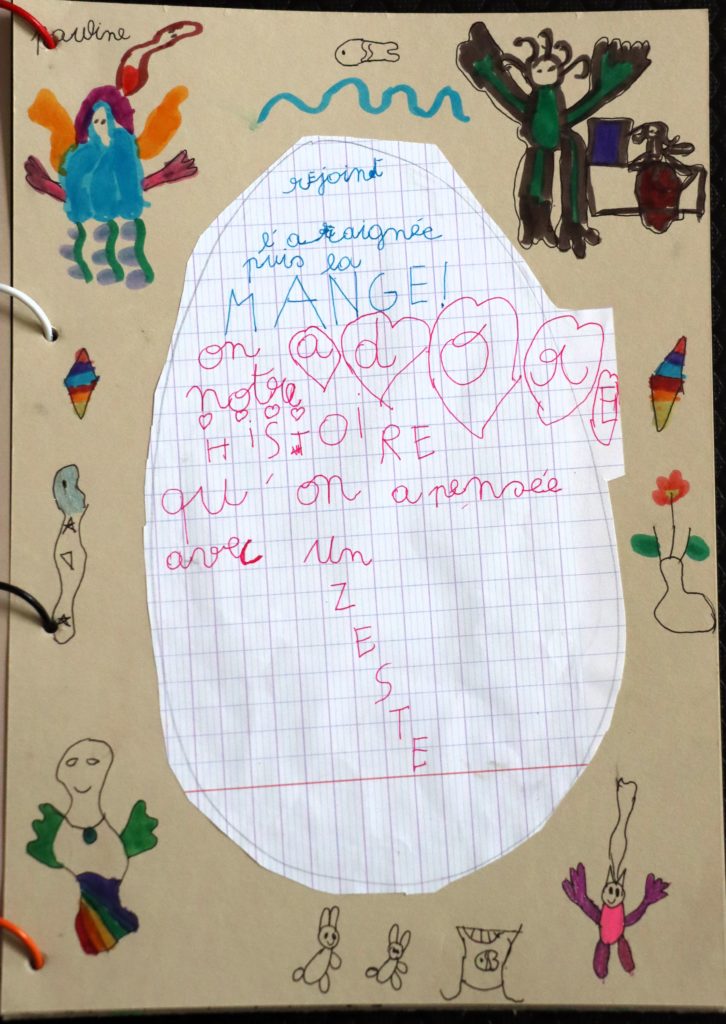 pauline
rejoint
l'araignée
puis la
MANGE!
on adoRE
notre
HiSTOiRE
qu'on a pensée
avec un
ZESTE